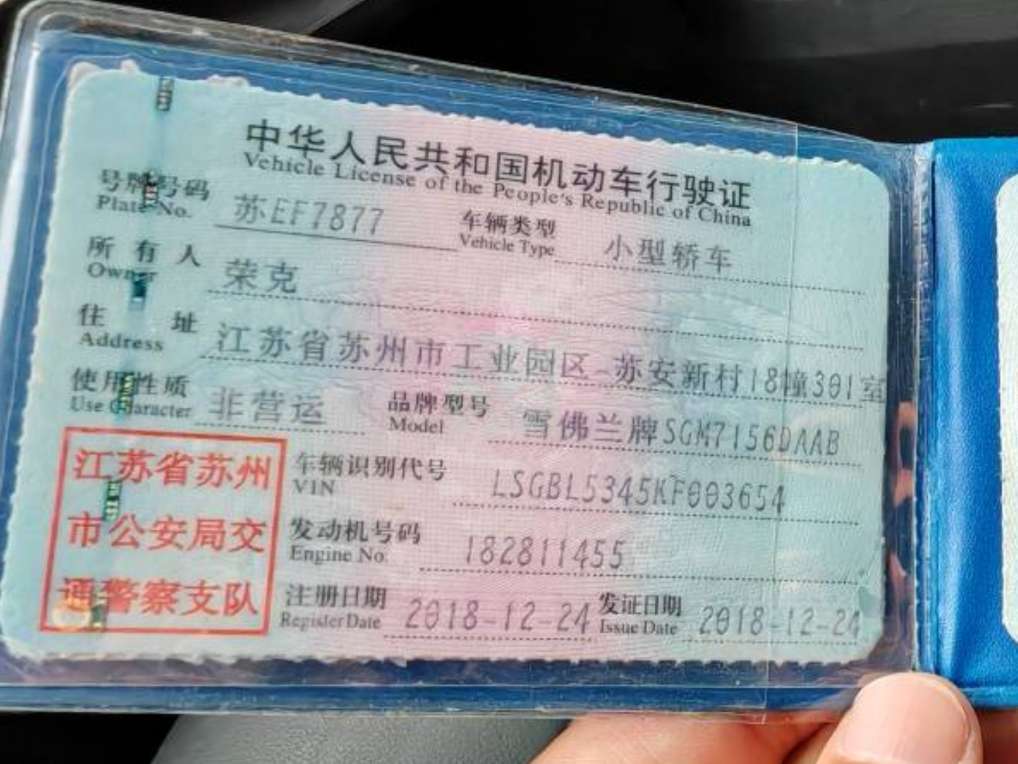 中华人民共和国机动车行驶证
Vehicle License of the People's Republic of China
号牌号码 苏EF7877 车辆类型 小型轿车
Plate No. Vehicle Type
所有人 荣克
Owner
住址 江苏省苏州市工业园区-苏安新村18幢301室
Address
使用性质 非营运 品牌型号 雪佛兰牌SGM7156DAAB
Use Character Model
江苏省苏州 车辆识别代号 LSGBL5345KF003654
VIN
市公安局交 发动机号码 182811455
Engine No.
通警察支队 注册日期 2018-12-24 发证日期 2018-12-24
Register Date Issue Date